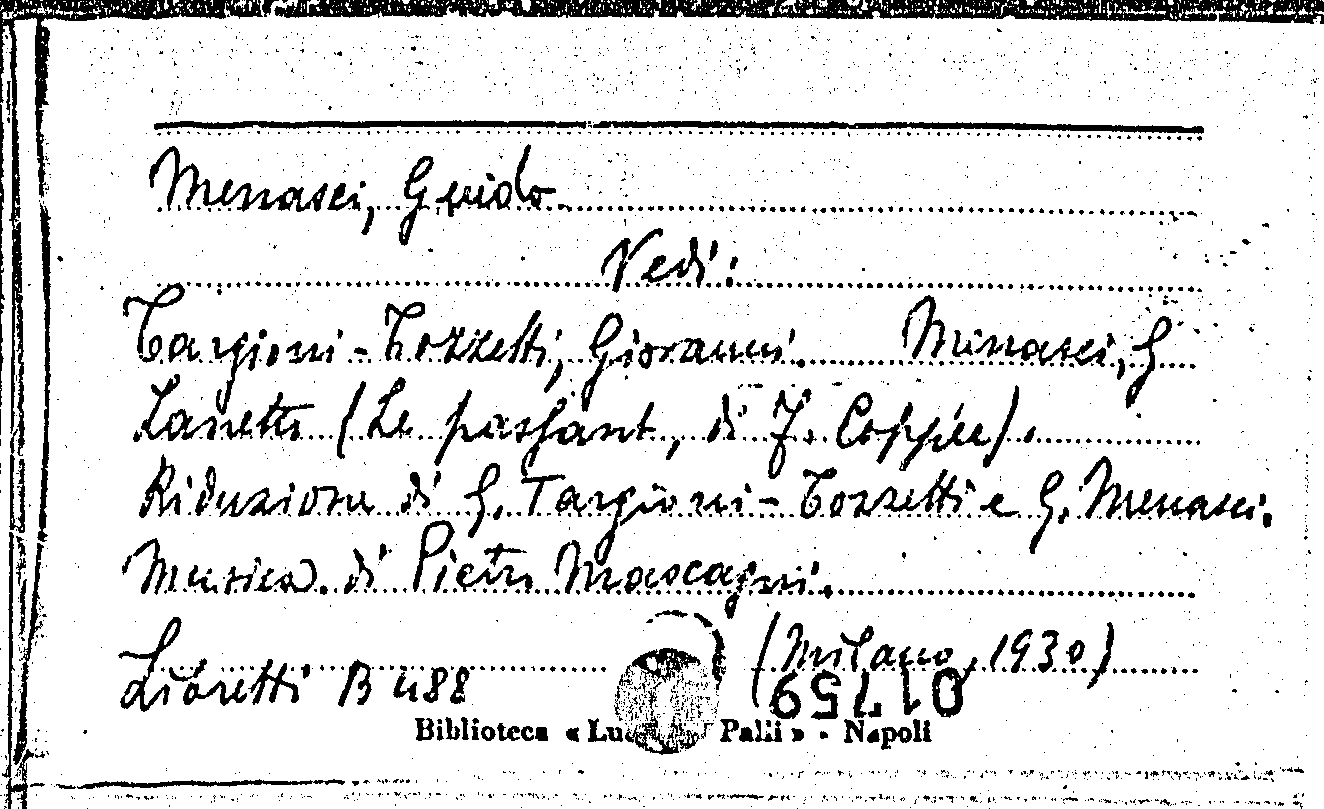 Menasci, Guido
Vedi:
Targioni-Tozzetti, Giovanni. Menasci, G
Zanetto (Le passant, di F. Coppée).
Riduzione di G. Targioni-Tozzetti e G. Menasci.
Musica di Pietro Mascagni.
(Milano, 1930)
Libretti B 488
01759
Biblioteca « Lu Palli » - Napoli